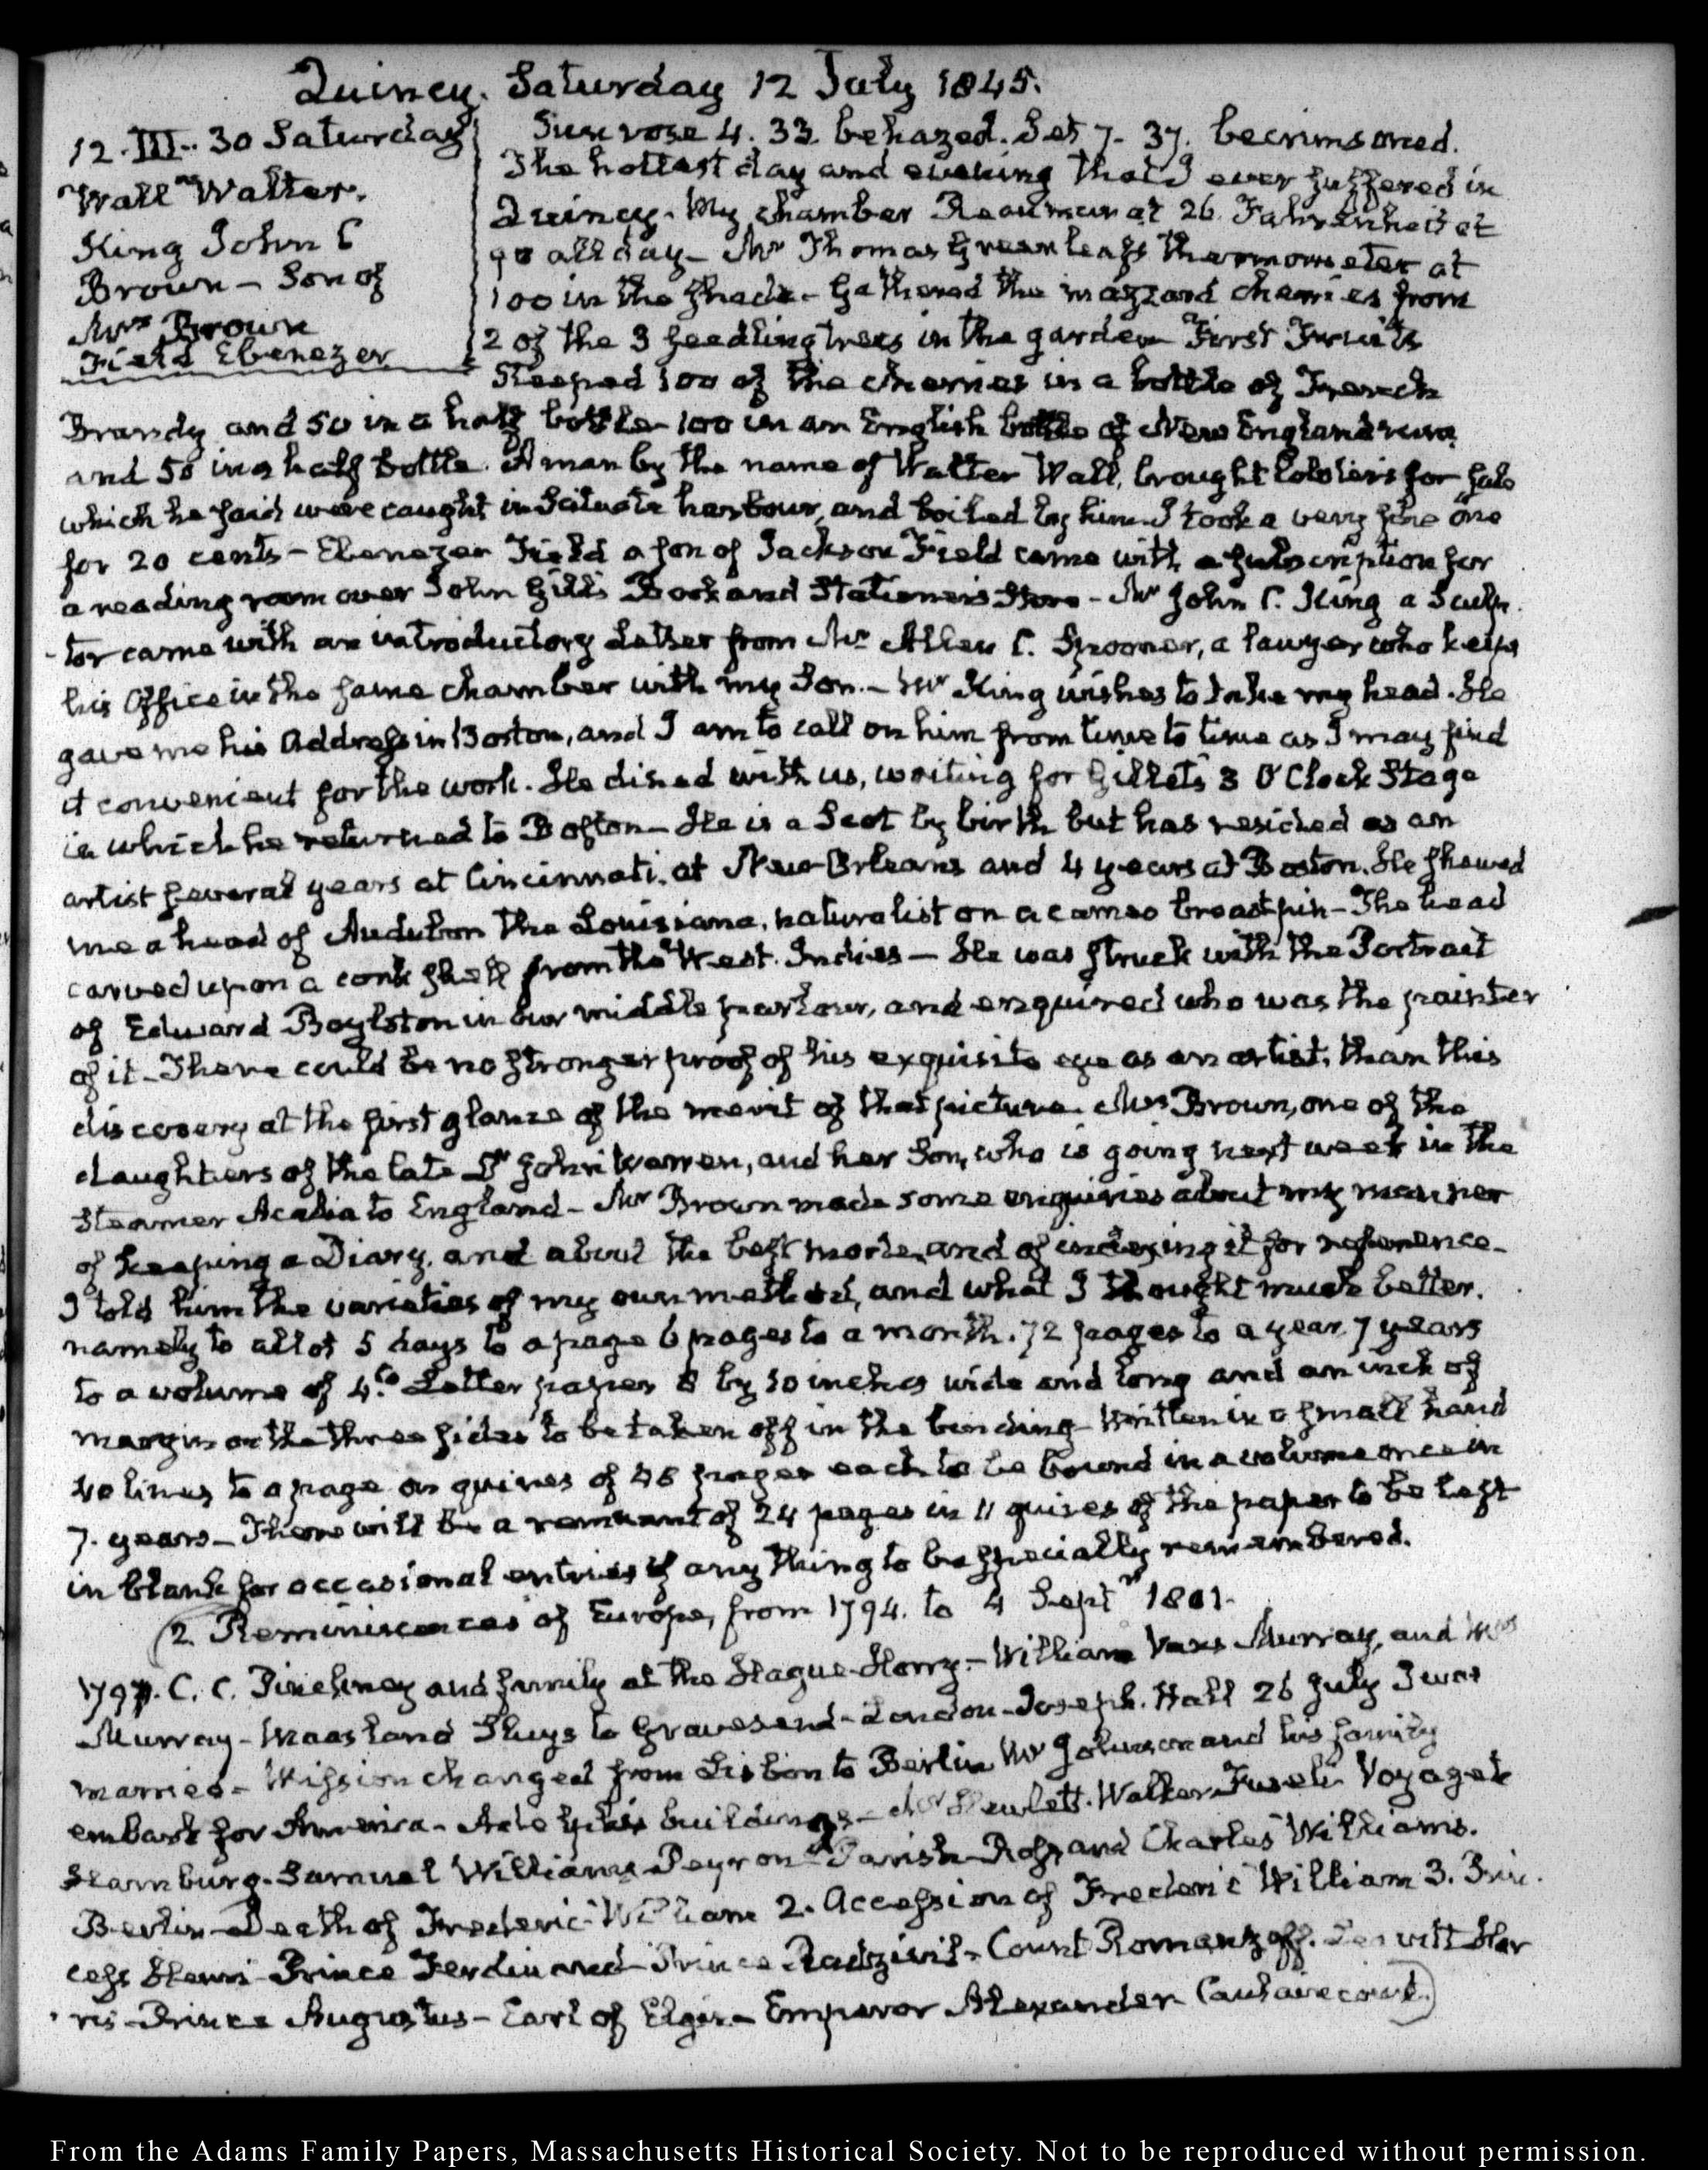 Quincy. Saturday 12 July 1845.
12. III. 30 Saturday
Wall Walter.
King John C
Brown – Son of
Mrs Brown
Field Ebenezer
Sun rose 4. 33. behazed. Set 7. 37. becrimsoned.
The hottest day and evening that I ever suffered in
Quincy. My chamber Reaumur at 26. Fahrenheit at
90 all day – Mr Thomas Greenleaf's thermometer at
100 in the shade – Gathered the mazzard cherries from
2 of the 3 seedling trees in the garden First Fruits
Steeped 100 of the cherries in a bottle of French
Brandy and 50 in a half bottle – 100 in an English bottle of New England rum
and 50 in a half bottle. A man by the name of Walter Wall, brought lobsters for sale
which he said were caught in Scituate harbour, and boiled by him. I took a very fine one
for 20 cents – Ebenezer Field a son of Jackson Field came with a subscription for
a reading room over John Gill's Book and Stationer's Store – Mr John C. King a Sculp-
tor came with an introductory Letter from Mr Allen C. Spooner, a lawyer who keeps
his Office in the same chamber with my Son. – Mr King wishes to take my head. He
gave me his Address in Boston, and I am to call on him from time to time as I may find
it convenient for the work. He dined with us, waiting for Gillett's 3 O'Clock Stage
in which he returned to Boston – He is a Scot by birth but has resided as an
artist several years at Cincinnati, at New Orleans and 4 years at Boston. He shewed
me a head of Audubon the Louisiana, naturalist on a cameo breastpin – The head
carved upon a conk shell from the West. Indies – He was struck with the Portrait
of Edward Boylston in our middle parlour, and enquired who was the painter
of it – There could be no stronger proof of his exquisite eye as an artist, than this
discovery at the first glance of the merit of that picture. Mrs Brown, one of the
daughters of the late Dr John Warren, and her Son, who is going next week in the
Steamer Acadia to England – Mr Brown made some enquiries about my manner
of keeping a Diary, and about the best mode, and of indexing it for reference –
I told him the varieties of my own method, and what I thought much better.
namely to allot 5 days to a page 6 pages to a month. 72 pages to a year, 7 years
to a volume of 4to Letter paper 8 by 10 inches wide and long and an inch of
margin on the three sides to be taken off in the binding – Written in a small hand
40 lines to a page on quires of 48 pages each to be bound in a volume once in
7. years – There will be a remnant of 24 pages in 11 quires of the paper to be left
in blank for occasional entries of any thing to be specially remembered.
(2. Reminiscences of Europe, from 1794. to 4 Septr 1801.
1797. C. C. Pinckney and family at the Hague – Horry – William Vans Murray, and Mrs
Murray – Maasland Sluys to Gravesend – London – Joseph. Hall 26 July I was
married – Mission changed from Lisbon to Berlin Mr Johnson and his family
embark for America – buildings – Mr Hewlett. Walker Fuseli Voyage to
Hamburg. Samuel Williams – Peyron – Parish – Ross and Charles Williams.
Berlin – Death of Frederic William 2. Accession of Frederic William 3. Prin-
cess Henri – Prince Ferdinand – Prince Radzivil – Count Romanzoff. Levitt Har
ris – Prince Augustus – Earl of Elgin – Emperor Alexander Caulaincourt.)
From the Adams Family Papers, Massachusetts Historical Society. Not to be reproduced without permission.